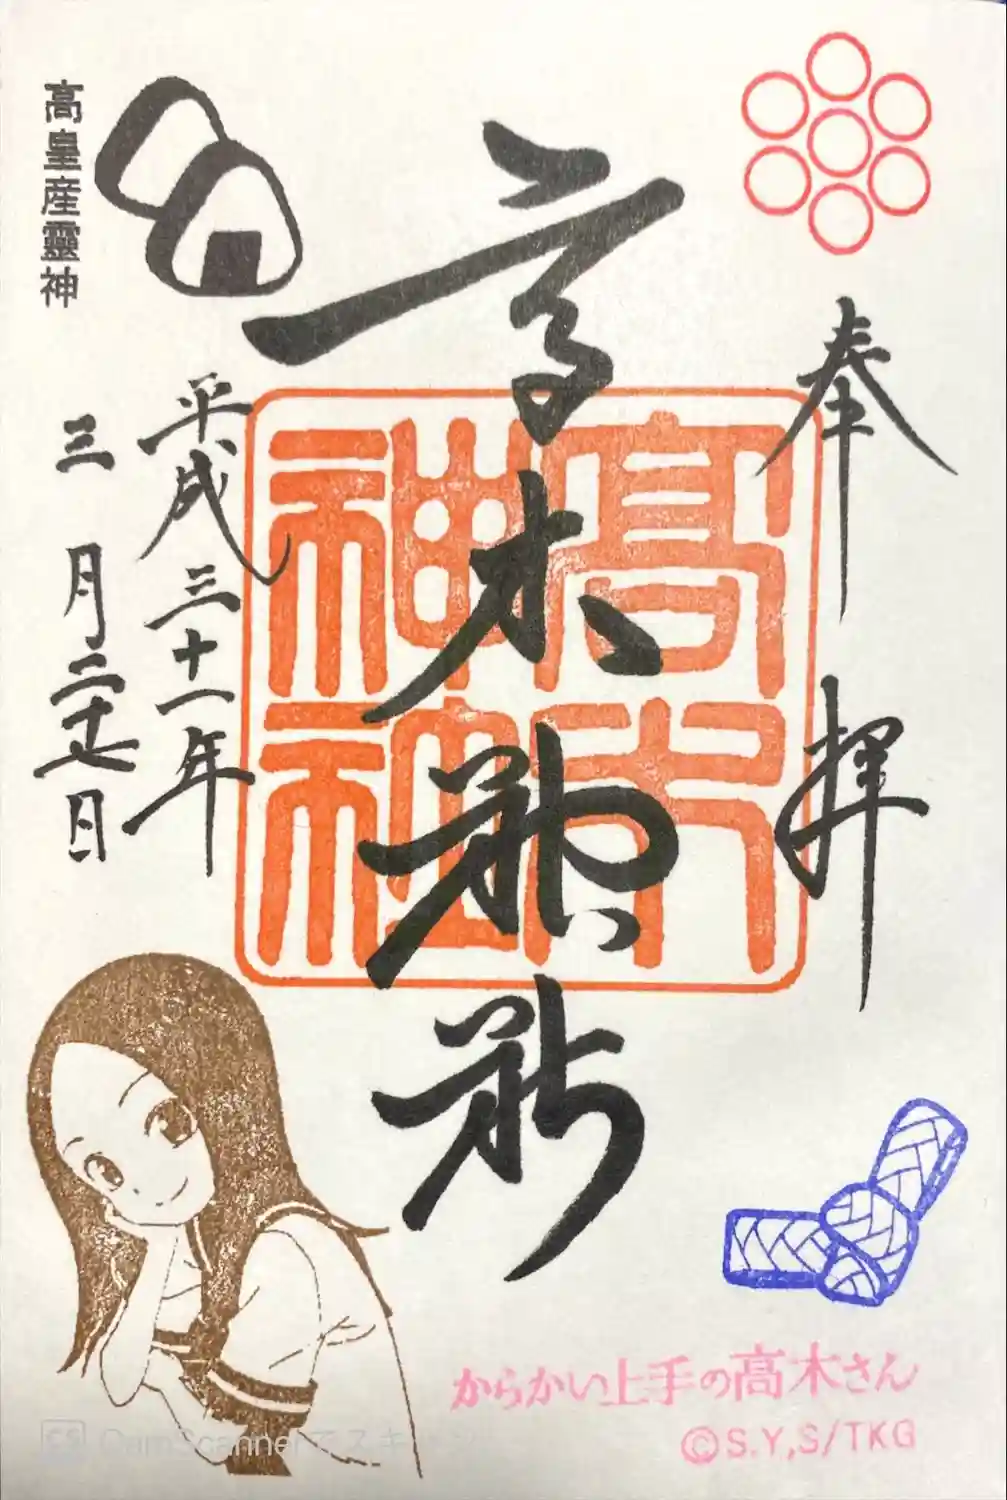 奉拝
高木神社
高木神社
平成三十一年
三月二十七日
高皇産靈神
からかい上手の高木さん
©S.Y,S/TKG
CS CamScannerでスキャン